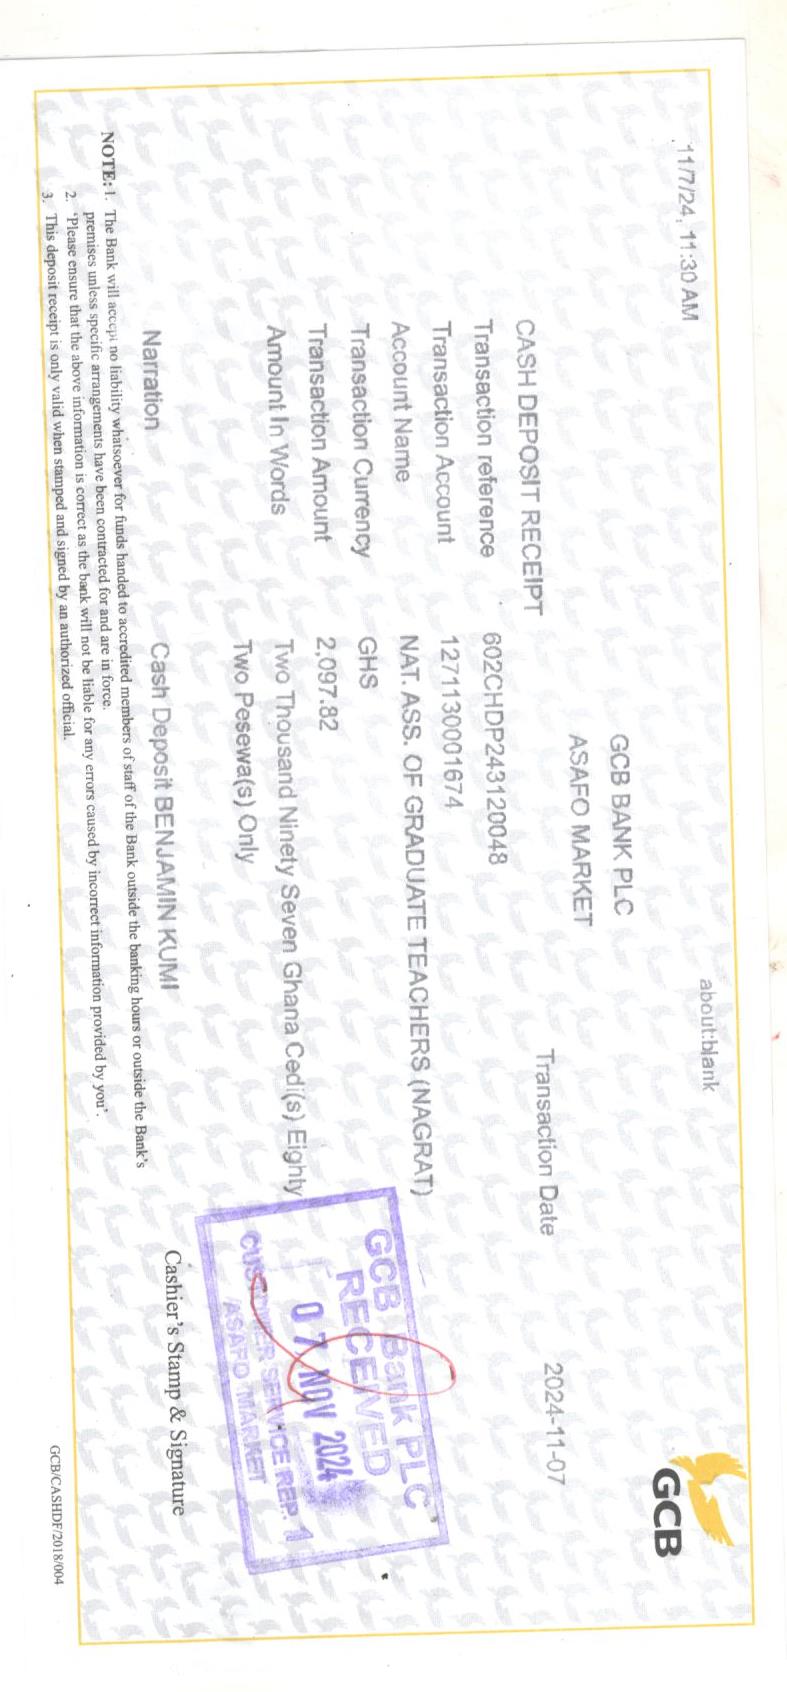 11/7/24, 11:30 AM
about:blank
GCB
GCB BANK PLC
ASAFO MARKET
Transaction Date 2024-11-07
CASH DEPOSIT RECEIPT
Transaction reference 602CHDP243120048
Transaction Account 1271130001674
Account Name NAT. ASS. OF GRADUATE TEACHERS (NAGRAT)
Transaction Currency GHS
Transaction Amount 2,097.82
Amount In Words Two Thousand Ninety Seven Ghana Cedi(s) Eighty
Two Pesewa(s) Only
Narration Cash Deposit BENJAMIN KUMI
GCB Bank PLC
RECEIVED
07 NOV 2024
CUSTOMER SERVICE REP. 1
ASAFO MARKET
Cashier's Stamp & Signature
NOTE: 1. The Bank will accept no liability whatsoever for funds handed to accredited members of staff of the Bank outside the banking hours or outside the Bank's
premises unless specific arrangements have been contracted for and are in force.
2. 'Please ensure that the above information is correct as the bank will not be liable for any errors caused by incorrect information provided by you'.
3. This deposit receipt is only valid when stamped and signed by an authorized official.
GCB/CASHDF/2018/004